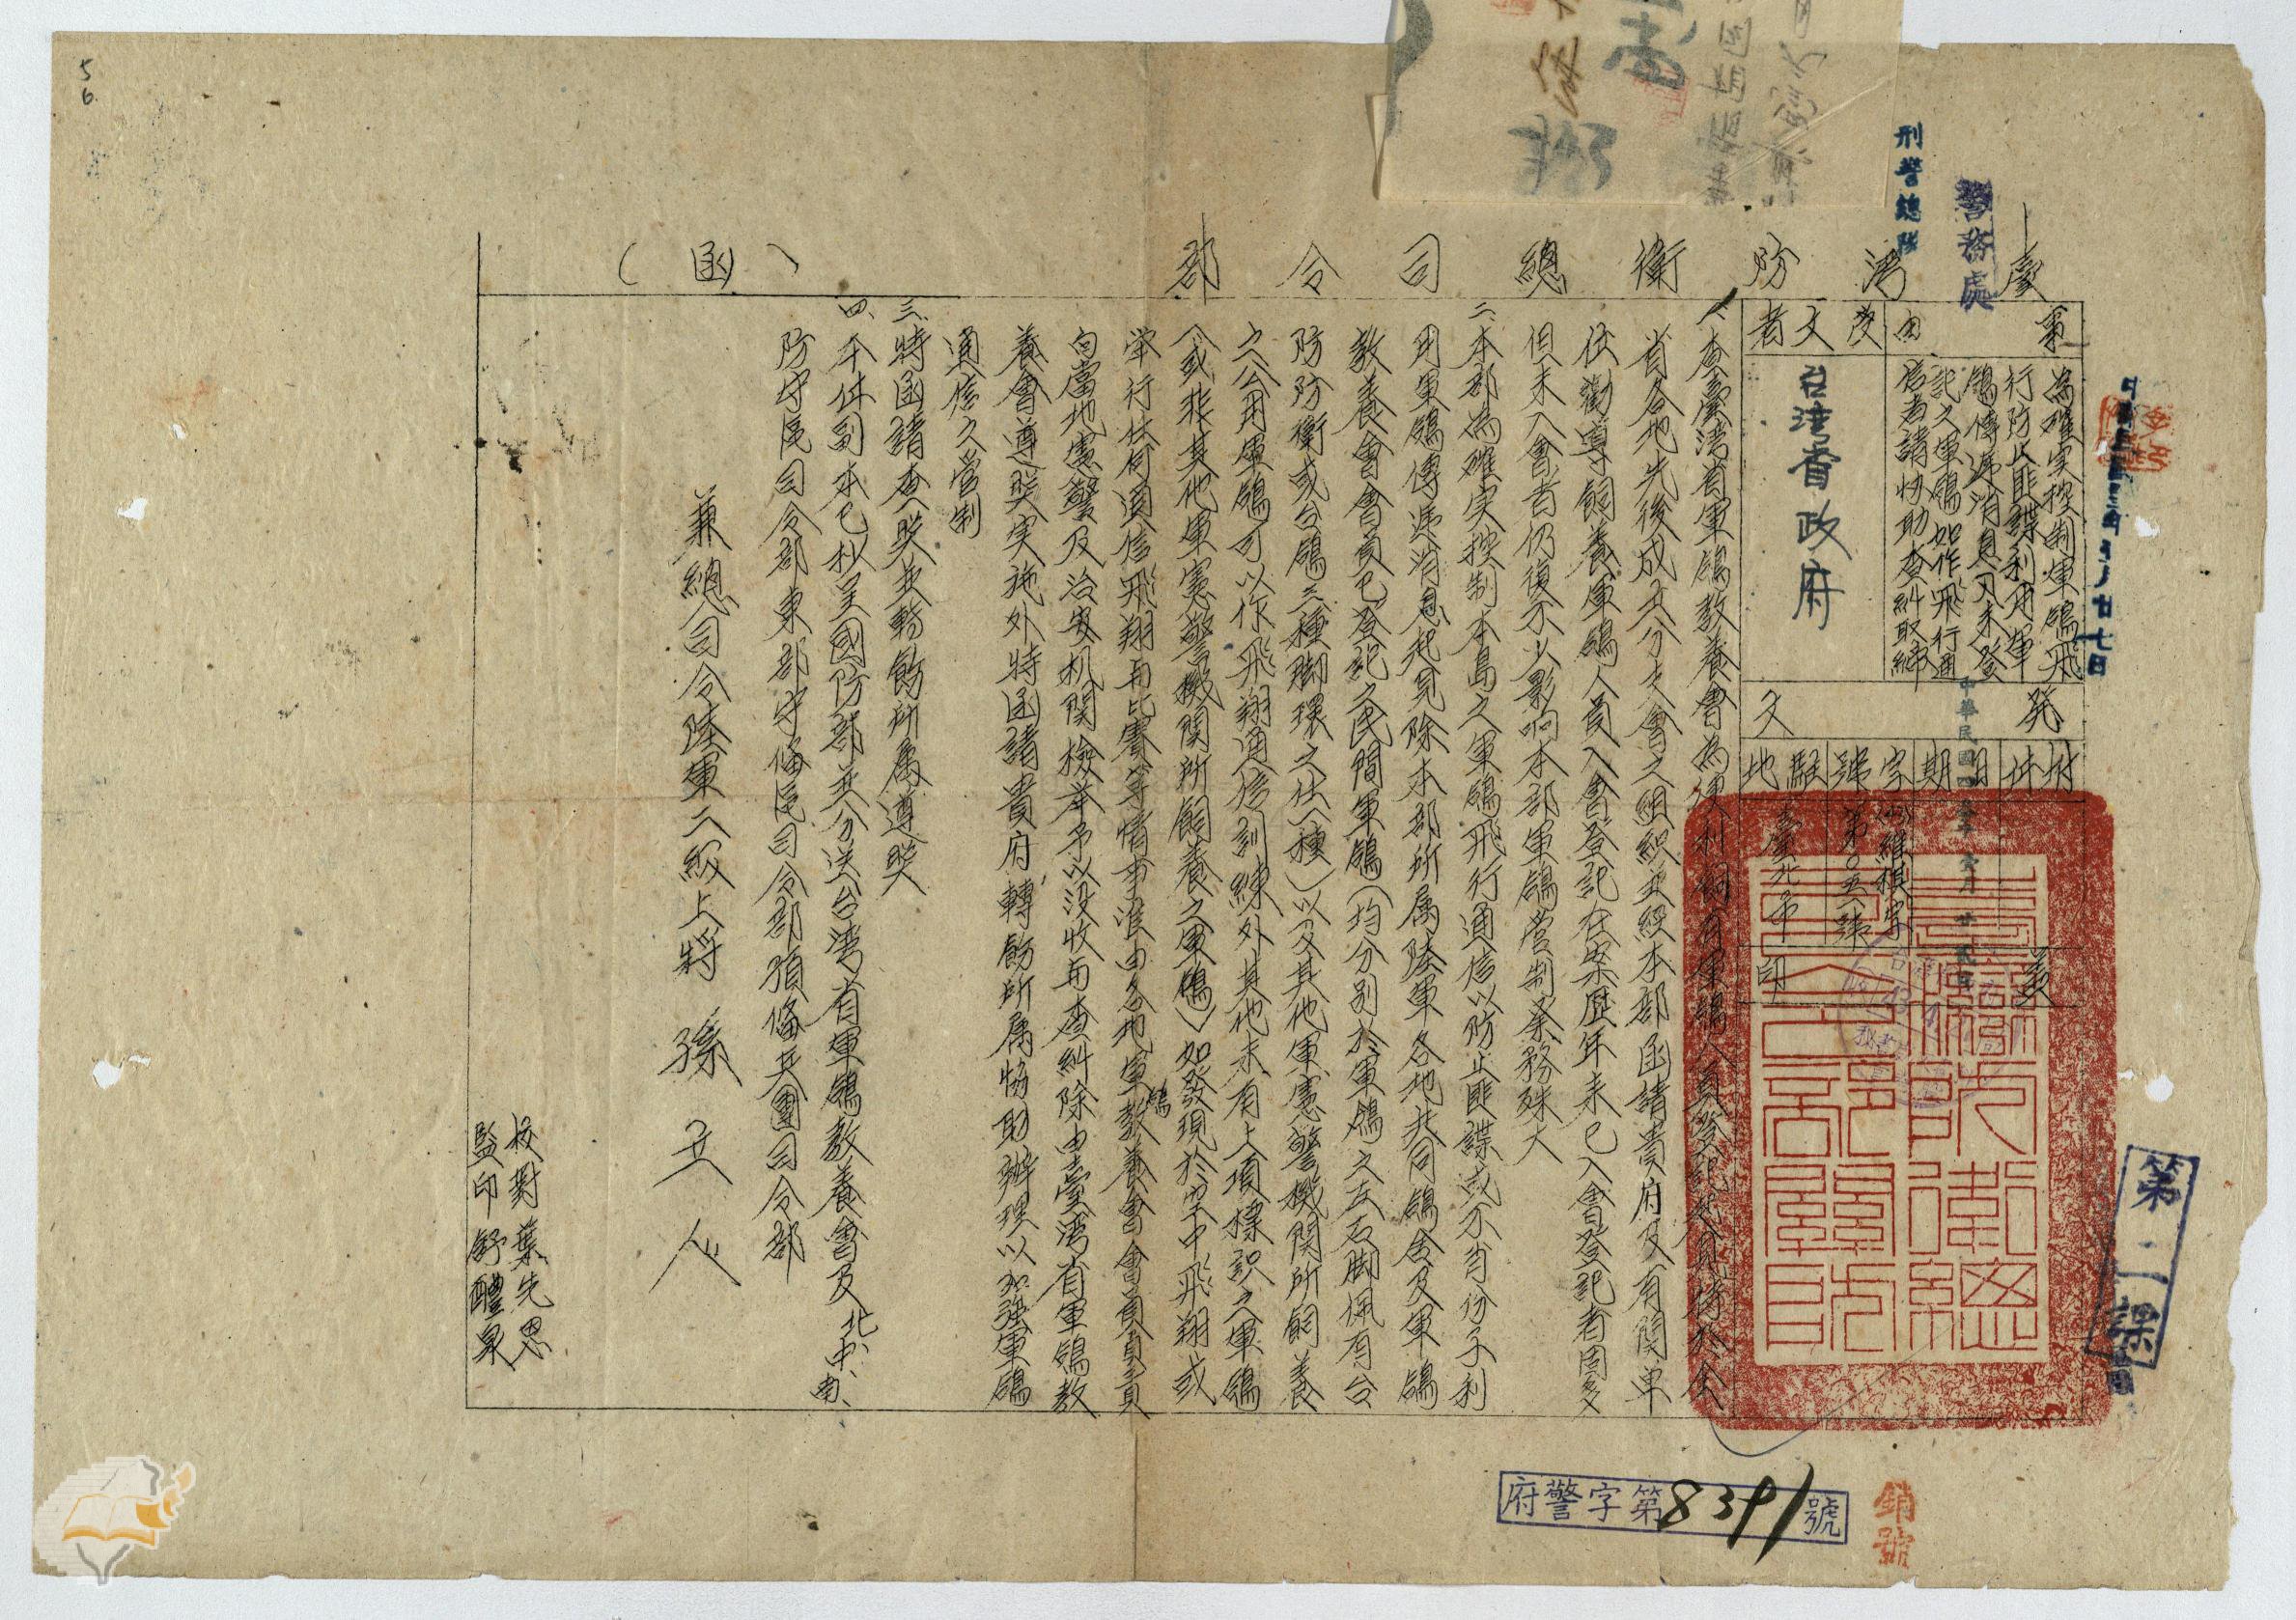 臺灣防衛總司令部(函)
事由
為確实控制軍鴿飛
行防止匪諜利用軍
鴿傳递消息又未登
記之軍鴿如作飛行通
信者請协助查糾取締
受文者
台灣省政府
發文
附件
日期
中華民國四參年 月廿貳日
字號
維棋字
第〇五八號
駐地
臺北市
蓋印
一、查臺湾省軍鴿教養會為便利飼有軍鴿人員登記起見特於全
省各地先後成立分支會之組织並經本部函請貴府及有関單
位勸導飼養軍鴿人員入會登記在案歷年来已入會登記者固多
但未入會者仍復不少影响本部軍鴿管制業務殊大
二、本部為確实控制本島之軍鴿飛行通信以防止匪諜或不肖份子利
用軍鴿傳递消息起見除本部所属陸軍各地共同鴿舍及軍鴿
教養會會員已登記之民間軍鴿(均分別於軍鴿之左右脚佩有台
防防衛或台鴿三種脚環之任一種)以及其他軍憲警機関所飼養
之公用軍鴿可以作飛翔通信訓練外其他未有上項標識之軍鴿
(或非其他軍憲警機関所飼養之軍鴿)如發現於空中飛翔或
举行任何通信飛翔与比賽等情事准由各地軍鴿教養會會員負責
向當地憲警及治安机関檢举予以没收与查糾除由臺湾省軍鴿教
養會遵照实施外特函請貴府轉飭所属協助辦理以加强軍鴿
通信之管制
三、特函請查照並轉飭所属遵照
四、本件副本已抄呈國防部并分送台湾省軍鴿教養會及北、中、南、
防守區司令部東部守備區司令部預備兵團司令部
兼總司令陸軍二級上將 孫立人
校對葉先恩
監印舒醴泉
警務處
刑警總隊
廿七日
第二課
府警字第8391號
銷號
56